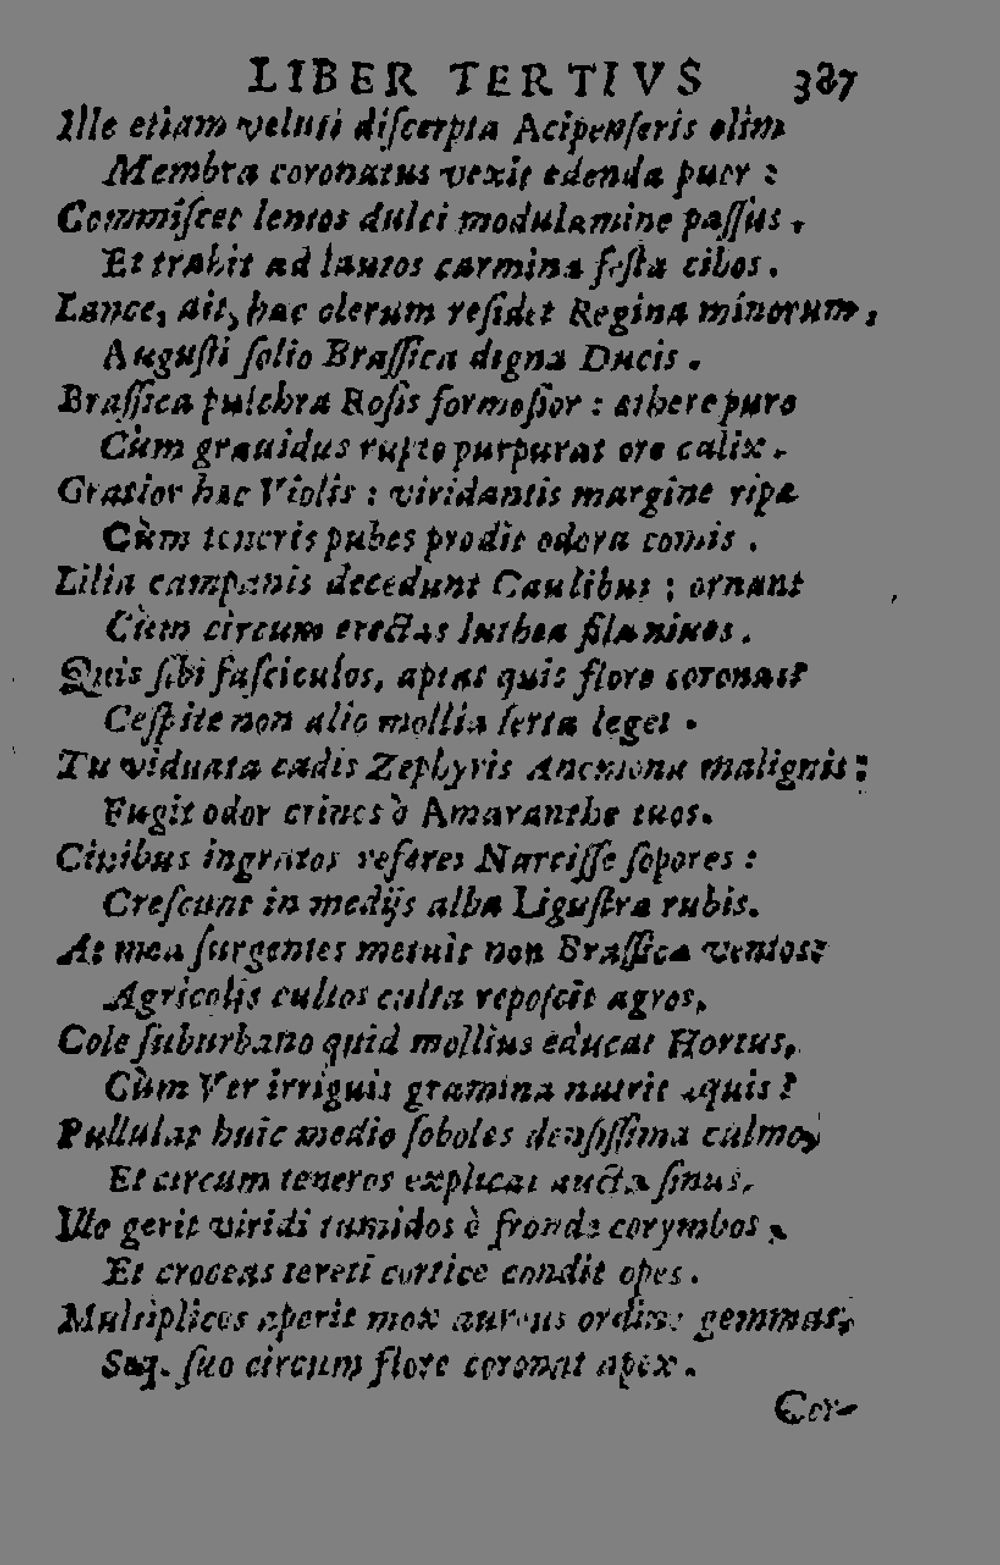 LIBER TERTIVS 387
Ille etiam veluti diſcerpta Acipenſeris olim
Membra coronatus vexit edenda puer :
Commiſcet lentos dulci modulamine paſſus,
Et trahit ad lautos carmina feſta cibos.
Lance, ait, hac olerum reſidet Regina minorum,
Auguſti ſolio Braſſica digna Ducis.
Braſſica pulchra Roſis formoſior : æthere puro
Cùm grauidus rupto purpurat ore calix.
Gratior hæc Violis : viridantis margine ripæ
Cùm teneris pubes prodit odora comis.
Lilia campanis decedunt Caulibus ; ornant
Cùm circum erectas luthea fila niues.
Quis ſibi faſciculos, aptat quis flore coronas?
Ceſpite non alio mollia ſerta leget.
Tu viduata cadis Zephyris Anemone malignis:
Fugit odor crines ò Amaranthe tuos.
Ciuibus ingratos referes Narciſſe ſopores :
Creſcunt in medijs alba Liguſtra rubis.
At mea ſurgentes metuit non Braſſica ventos:
Agricolis cultos culta repoſcit agros,
Cole ſuburbano quid mollius educat Hortus,
Cùm Ver irriguis gramina nutrit aquis?
Pullulat huic medio ſoboles denſiſſima culmo,
Et circum teneros explicat aucta ſinus,
Vto gerit viridi tumidos è fronde corymbos,
Et croceas tereti cortice condit opes.
Multiplices aperit mox aureus ordine gemmas,
Suoq. ſuo circum flore coronat apex.
Cor-